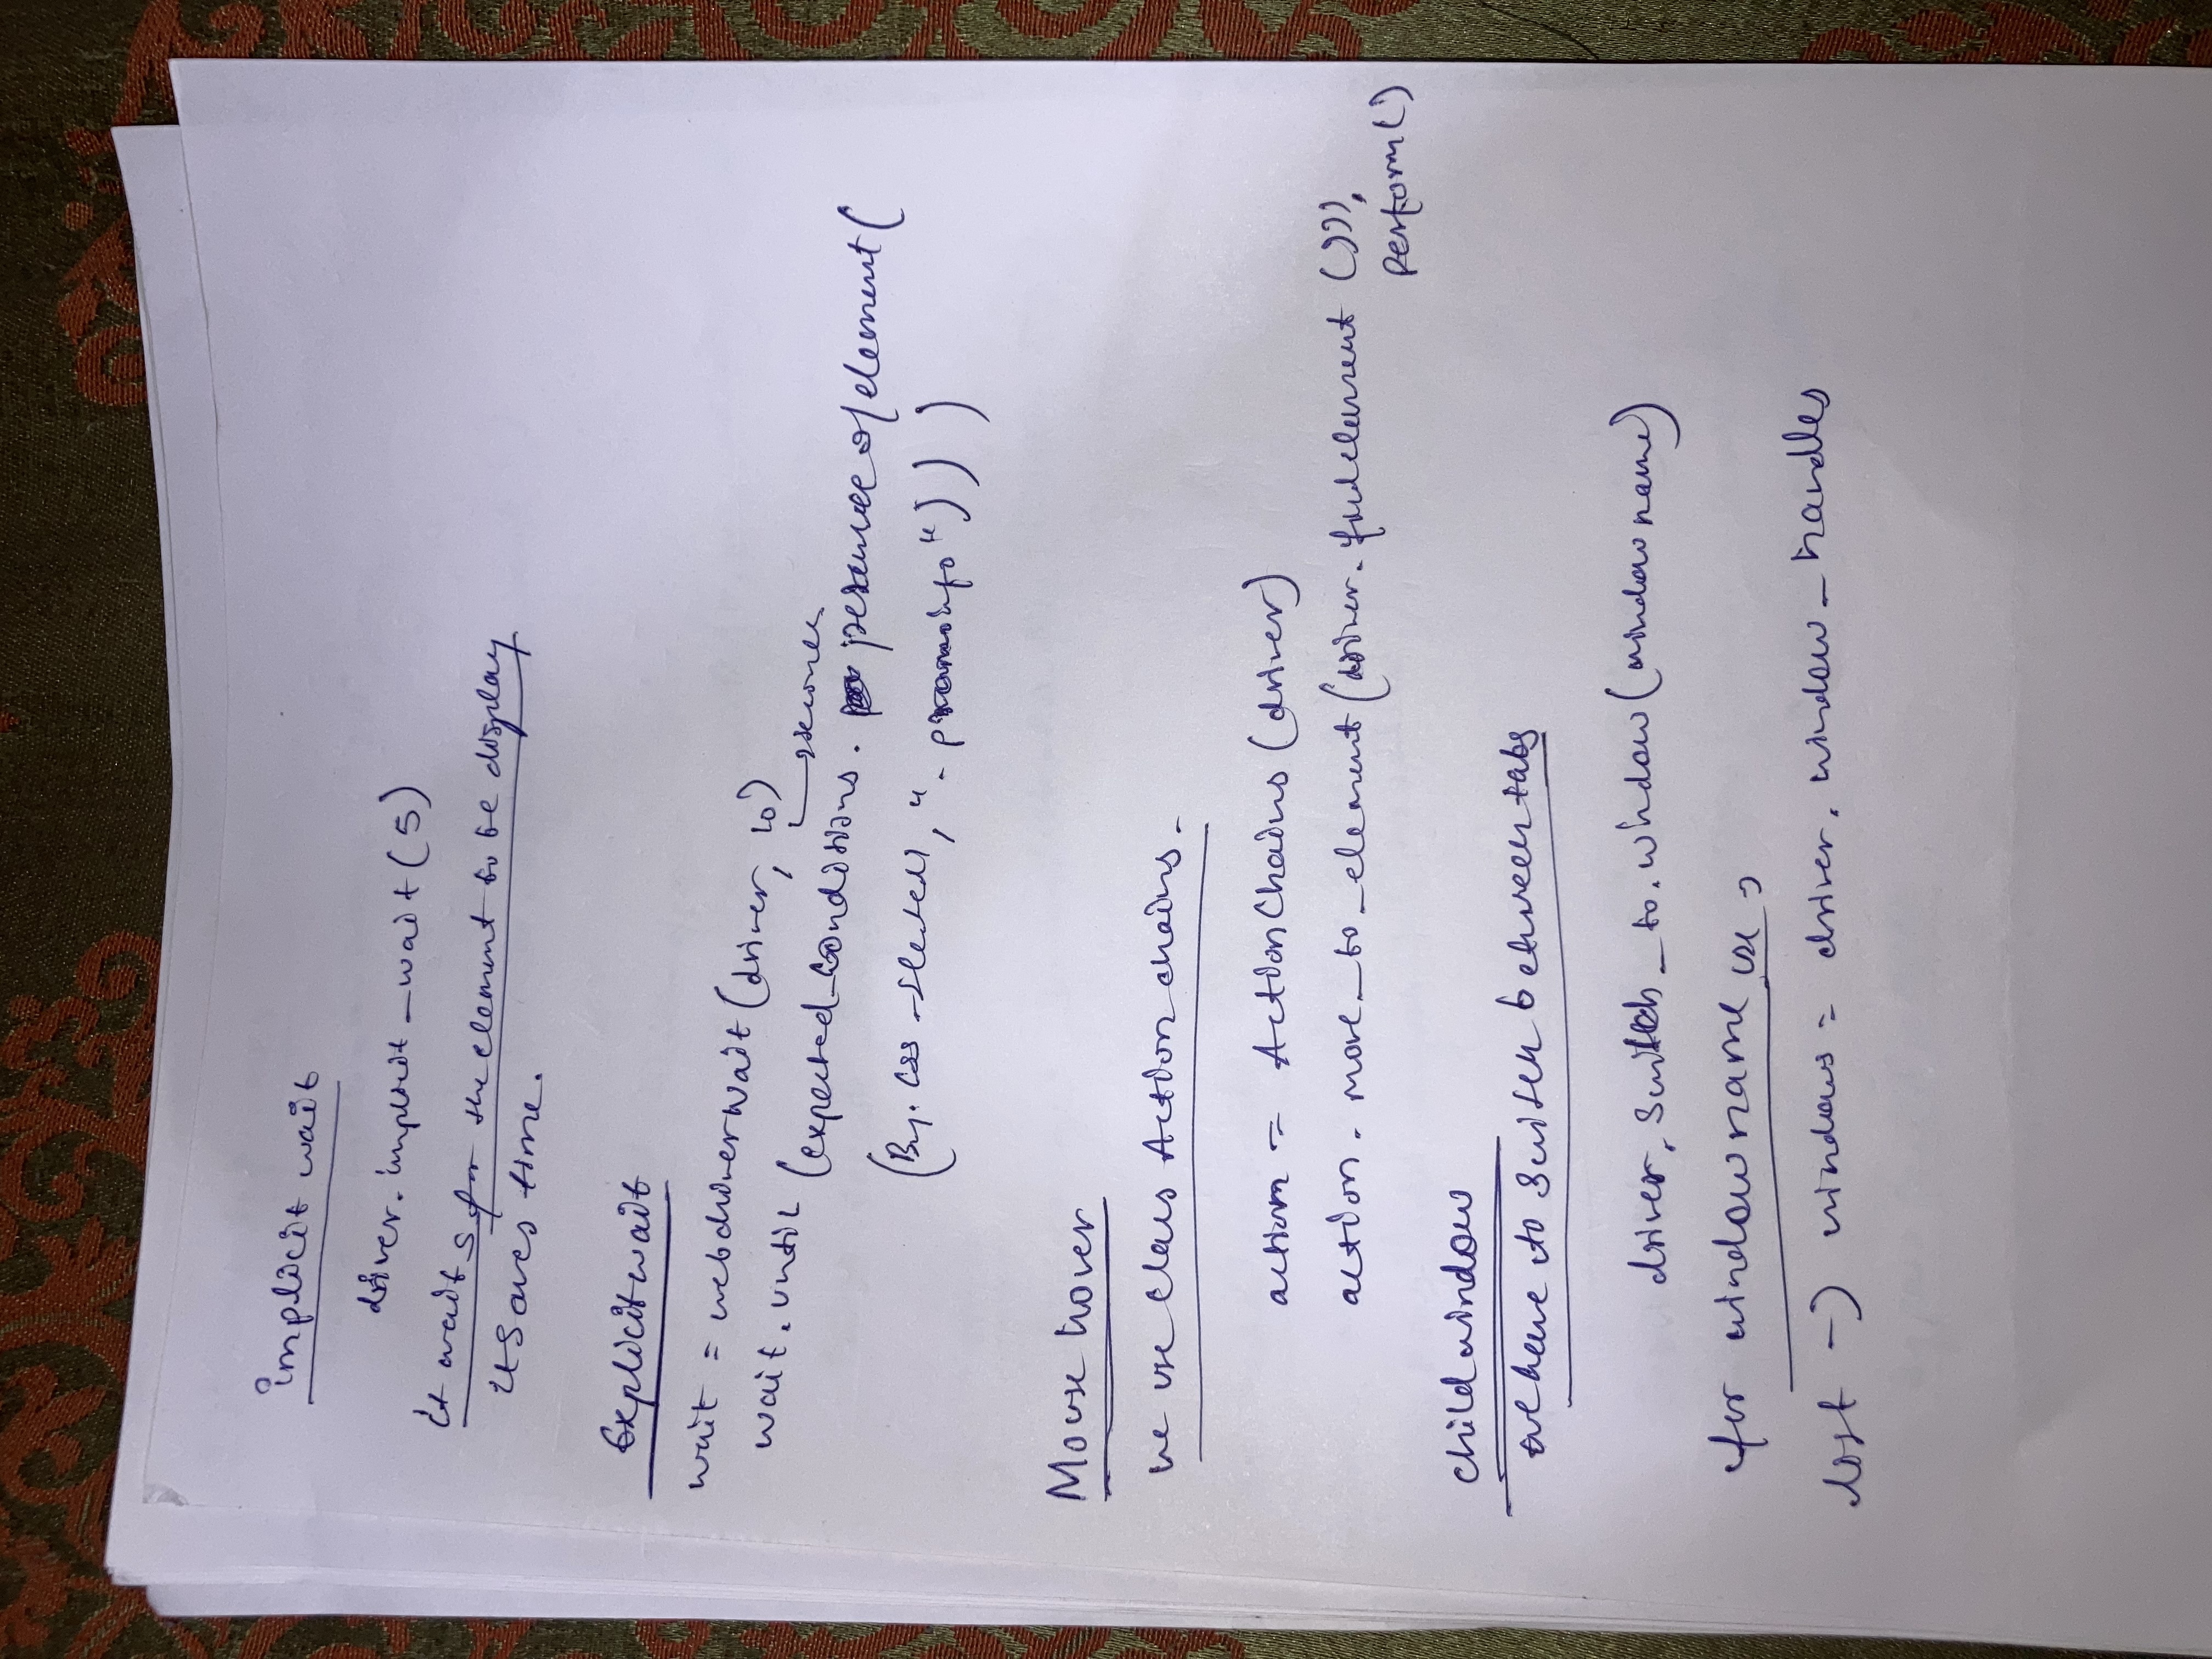 implicit wait
driver. implicit_wait(5)
it waits for the element to be display
it Saves time.
Explicit wait
wait = webdriverWait(driver, 10)
seconds
wait. until (expected_conditions. presence of element(
(By. CSS_Selector, ". promoinfo")))
Mouse hover
we use Class Action chains.
action = ActionChains (driver)
action. move_to_element(driver. findelement ())).
perform()
child window
we have to Switch between tabs
driver. Switch_to. window(window name)
for window name use
list -> windows = driver. window_handles